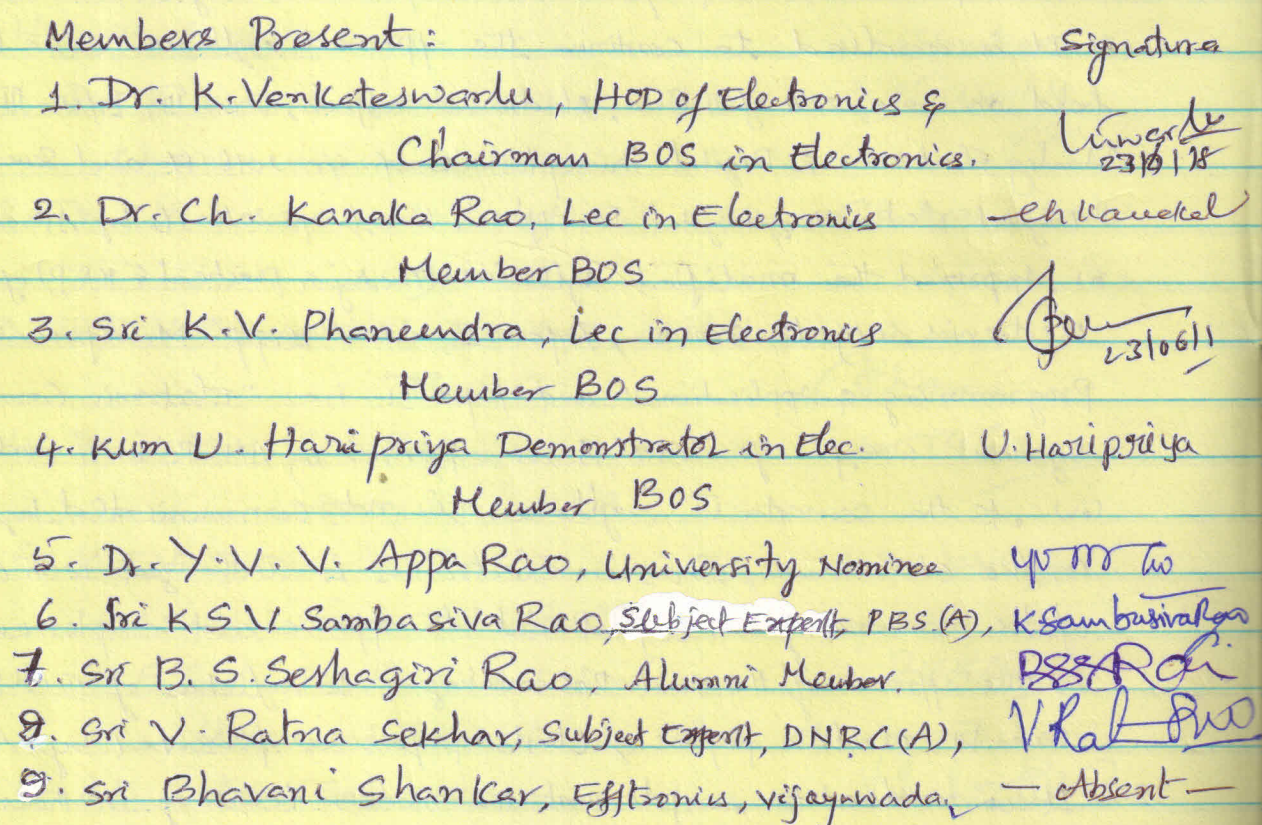 Members Present: Signature
1. Dr. K. Venkateswarlu, HOD of Electronics &
Chairman BOS in Electronics.
2. Dr. Ch. Kanaka Rao, Lec in Electronics
Member BOS
3. Sri K.V. Phaneendra, Lec in Electronics
23/06/1
Member BOS
4. Kum U. Hari priya Demonstrator in Elec. U. Haripriya
Member BOS
5. Dr. Y. V. V. Appa Rao, University Nominee
6. Sri K S V Sambasiva Rao, Subject Expert, PBS.(A), KSambasivaRao
7. Sri B. S. Seshagiri Rao, Alumni Member. BSSRao
8. Sri V. Ratna Sekhar, Subject Expert, DNRC(A),
9. Sri Bhavani Shankar, Efftronics, vijayawada, — Absent —